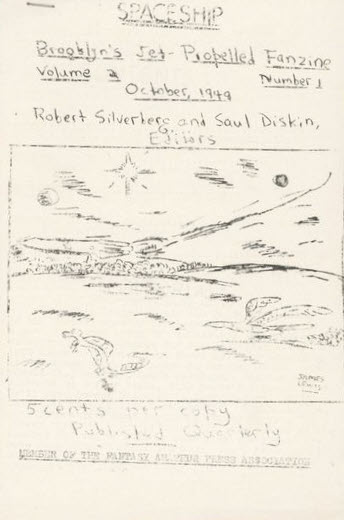 SPACESHIP
Brooklyn's Jet-Propelled Fanzine
Volume 2 Number 1
October, 1949
Robert Silverberg and Saul Diskin,
Editors
LEWIS
5 cents per copy
Published Quarterly
MEMBER OF THE FANTASY AMATEUR PRESS ASSOCIATION